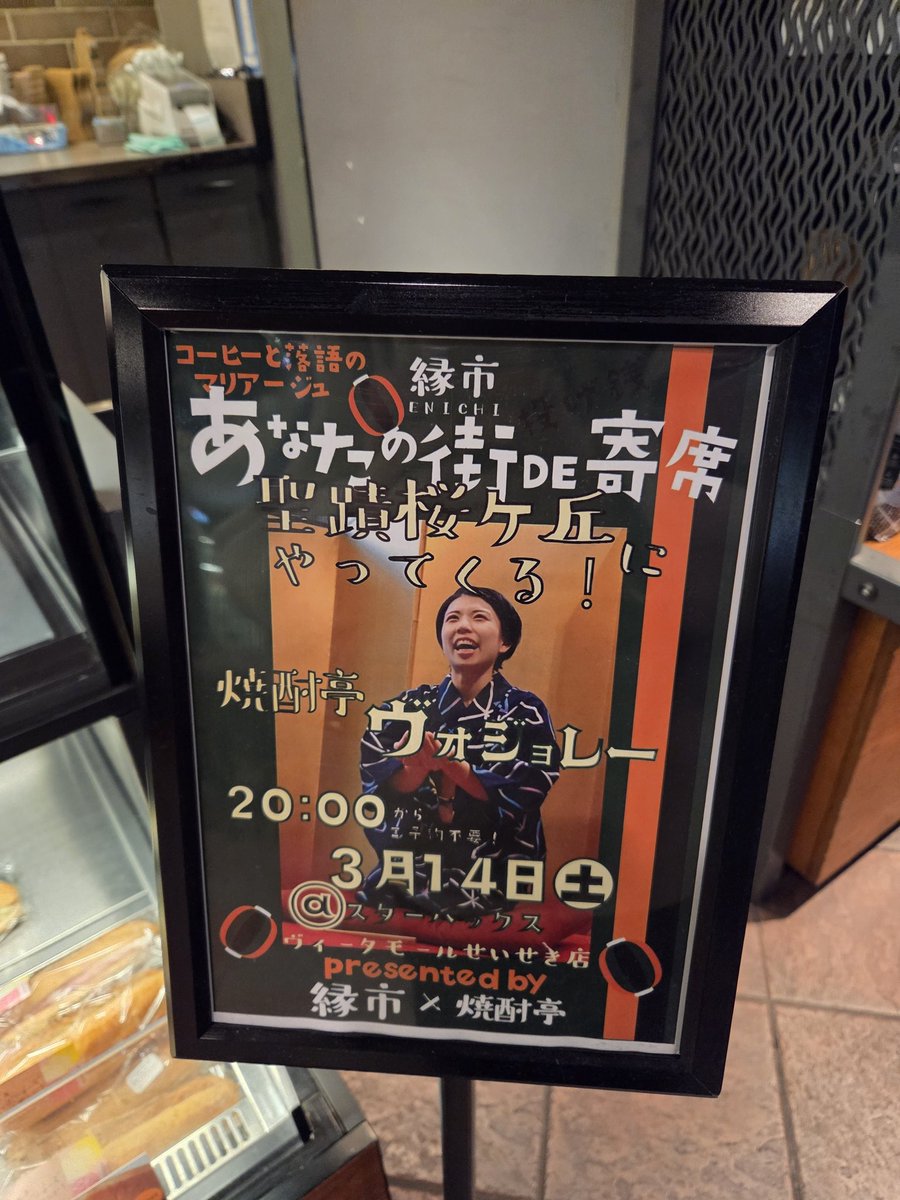 コーヒーと落語の
マリアージュ
縁市
ENICHI
あなたの街DE寄席
聖蹟桜ケ丘に
やってくる!
焼酎亭
ヴォジョレー
20:00から
ご予約不要!
3月14日土
@スターバックス
ヴィータモールせいせき店
presented by
縁市×焼酎亭